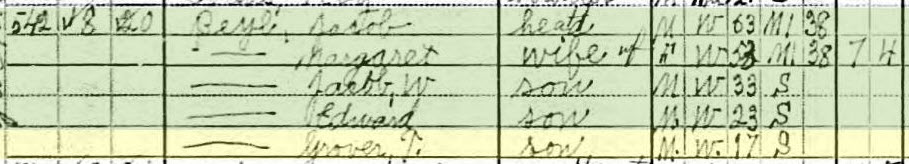 542 18 20 Beyl, Jacob head M W 63 M1 38
— Margaret wife F W 58 M1 38 7 4
— Jacob, W son M W 33 S
— Edward son M W 23 S
— Grover, T. son M W 17 S